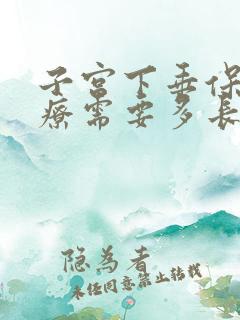 子宫下垂保
疗需要多长
隐为者
未经同意禁止转载